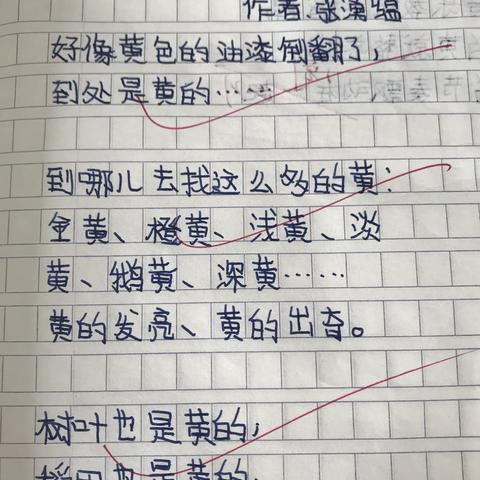 作者.张漪缊
好像黄色的油漆倒翻了,
到处是黄的……
到哪儿去找这么多的黄:
金黄、橙黄、浅黄、淡
黄、鹅黄、深黄……
黄的发亮、黄的出奇。
树叶也是黄的,
稻田也是黄的,